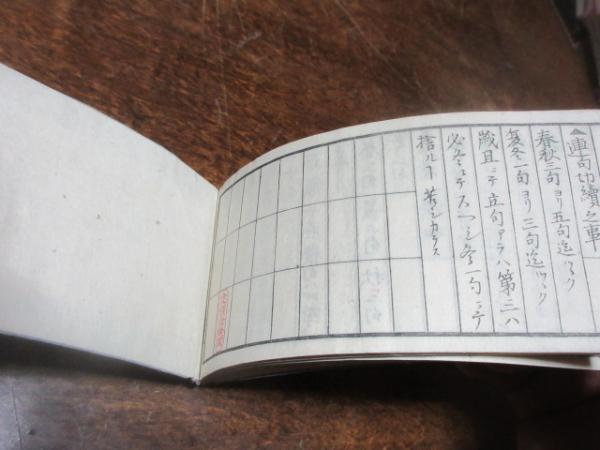 ▲連句切續之事
春秋三句ヨリ五句迄ツヽク
夏冬一句ヨリ三句迄ツヽク
歳旦ニテ立句アラハ第三ハ
必冬ニテスヘシ冬一句ニテ
捨ルヿ苦シカラス